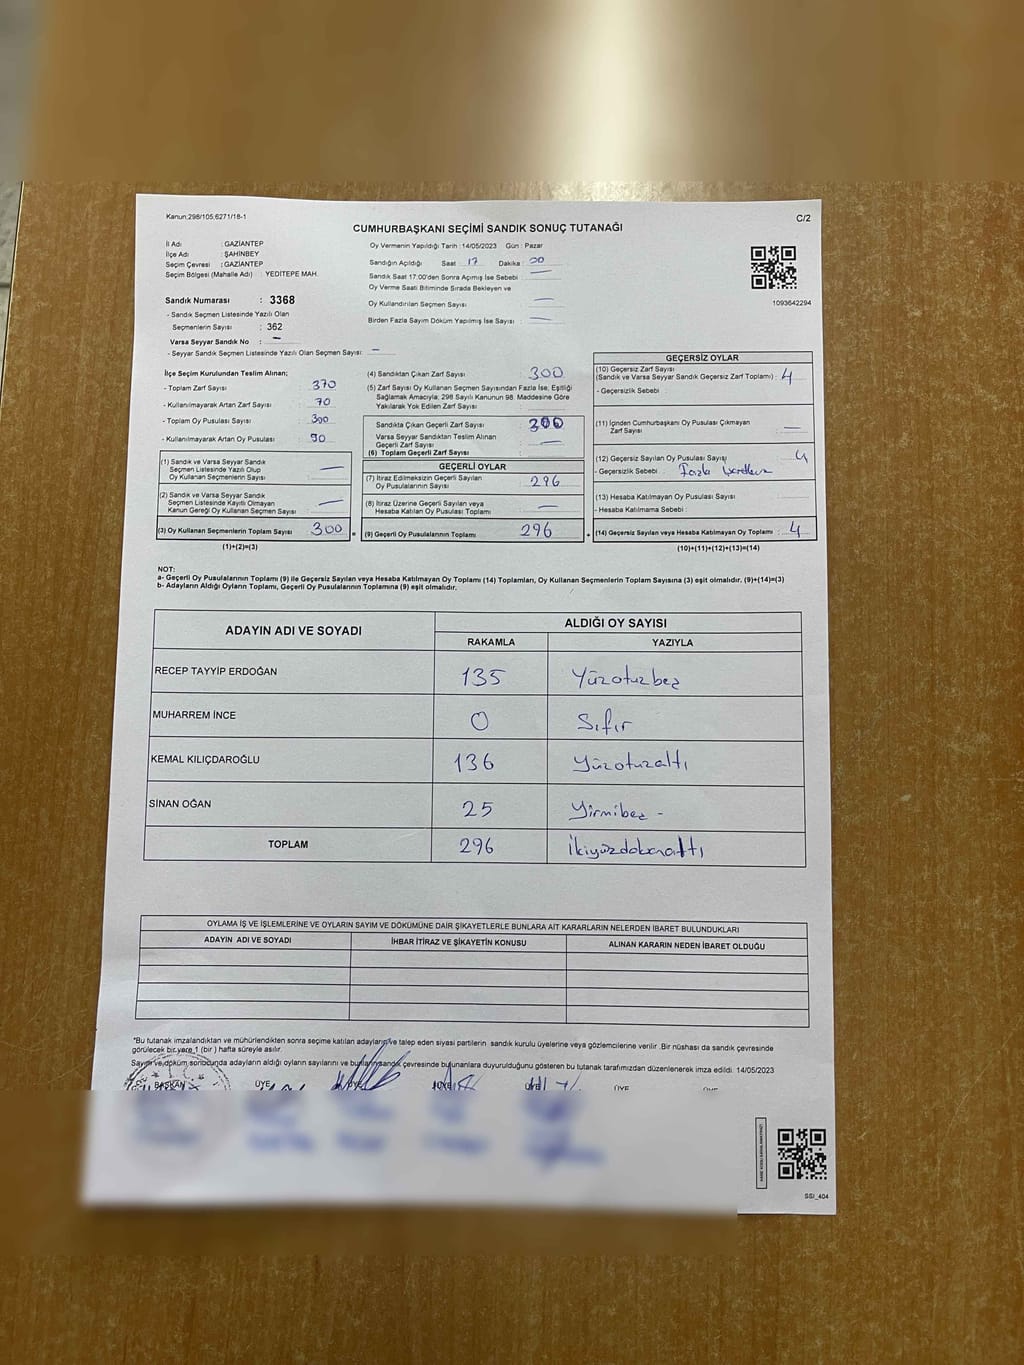 Kanun:298/105,6271/18-1
C/2
CUMHURBAŞKANI SEÇİMİ SANDIK SONUÇ TUTANAĞI
İl Adı : GAZİANTEP
İlçe Adı : ŞAHİNBEY
Seçim Çevresi : GAZİANTEP
Seçim Bölgesi (Mahalle Adı) : YEDİTEPE MAH.
Oy Vermenin Yapıldığı Tarih : 14/05/2023 Gün : Pazar
Sandığın Açıldığı Saat 17 Dakika 00
Sandık Saat 17:00'den Sonra Açımış İse Sebebi —
Oy Verme Saati Bitiminde Sırada Bekleyen ve
Oy Kullandırılan Seçmen Sayısı —
Birden Fazla Sayım Döküm Yapılmış İse Sayısı : —
1093642294
Sandık Numarası : 3368
- Sandık Seçmen Listesinde Yazılı Olan
Seçmenlerin Sayısı : 362
Varsa Seyyar Sandık No : —
- Seyyar Sandık Seçmen Listesinde Yazılı Olan Seçmen Sayısı: —
İlçe Seçim Kurulundan Teslim Alınan;
- Toplam Zarf Sayısı : 370
- Kullanılmayarak Artan Zarf Sayısı : 70
- Toplam Oy Pusulası Sayısı : 300
- Kullanılmayarak Artan Oy Pusulası : 90
(1) Sandık ve Varsa Seyyar Sandık
Seçmen Listesinde Yazılı Olup
Oy Kullanan Seçmenlerin Sayısı —
(2) Sandık ve Varsa Seyyar Sandık
Seçmen Listesinde Kayıtlı Olmayan
Kanun Gereği Oy Kullanan Seçmen Sayısı —
(3) Oy Kullanan Seçmenlerin Toplam Sayısı 300
(1)+(2)=(3)
(4) Sandıktan Çıkan Zarf Sayısı 300
(5) Zarf Sayısı Oy Kullanan Seçmen Sayısından Fazla İse, Eşitliği
Sağlamak Amacıyla; 298 Sayılı Kanunun 98. Maddesine Göre
Yakılarak Yok Edilen Zarf Sayısı :
Sandıkta Çıkan Geçerli Zarf Sayısı 300
Varsa Seyyar Sandıktan Teslim Alınan
Geçerli Zarf Sayısı —
(6) Toplam Geçerli Zarf Sayısı :
GEÇERLİ OYLAR
(7) İtiraz Edilmeksizin Geçerli Sayılan
Oy Pusulalarının Sayısı 296
(8) İtiraz Üzerine Geçerli Sayılan veya
Hesaba Katılan Oy Pusulası Toplamı —
(9) Geçerli Oy Pusulalarının Toplamı 296
GEÇERSİZ OYLAR
(10) Geçersiz Zarf Sayısı
(Sandık ve Varsa Seyyar Sandık Geçersiz Zarf Toplamı) : 4
- Geçersizlik Sebebi :
(11) İçinden Cumhurbaşkanı Oy Pusulası Çıkmayan
Zarf Sayısı —
(12) Geçersiz Sayılan Oy Pusulası Sayısı 4
- Geçersizlik Sebebi : Fazla
(13) Hesaba Katılmayan Oy Pusulası Sayısı
- Hesaba Katılmama Sebebi :
(14) Geçersiz Sayılan veya Hesaba Katılmayan Oy Toplamı : 4
(10)+(11)+(12)+(13)=(14)
NOT:
a- Geçerli Oy Pusulalarının Toplamı (9) ile Geçersiz Sayılan veya Hesaba Katılmayan Oy Toplamı (14) Toplamları, Oy Kullanan Seçmenlerin Toplam Sayısına (3) eşit olmalıdır. (9)+(14)=(3)
b- Adayların Aldığı Oyların Toplamı, Geçerli Oy Pusulalarının Toplamına (9) eşit olmalıdır.
ADAYIN ADI VE SOYADI ALDIĞI OY SAYISI
RAKAMLA YAZIYLA
RECEP TAYYİP ERDOĞAN 135 Yüzotuzbeş
MUHARREM İNCE 0 Sıfır
KEMAL KILIÇDAROĞLU 136 Yüzotuzaltı
SİNAN OĞAN 25 Yirmibeş -
TOPLAM 296 İkiyüzdoksanaltı
OYLAMA İŞ VE İŞLEMLERİNE VE OYLARIN SAYIM VE DÖKÜMÜNE DAİR ŞİKAYETLERLE BUNLARA AİT KARARLARIN NELERDEN İBARET BULUNDUKLARI
ADAYIN ADI VE SOYADI İHBAR İTİRAZ VE ŞİKAYETİN KONUSU ALINAN KARARIN NEDEN İBARET OLDUĞU
*Bu tutanak imzalandıktan ve mühürlendikten sonra seçime katılan adaylara ve talep eden siyasi partilerin sandık kurulu üyelerine veya gözlemcilerine verilir. Bir nüshası da sandık çevresinde
görülecek bir yere 1 (bir) hafta süreyle asılır.
Sayım ve döküm sonucunda adayların aldığı oyların sayılarını ve bunların sandık çevresinde bulunanlara duyurulduğunu gösteren bu tutanak tarafımızdan düzenlenerek imza edildi. 14/05/2023
BAŞKAN ÜYE ÜYE ÜYE ÜYE ÜYE
SSİ_404